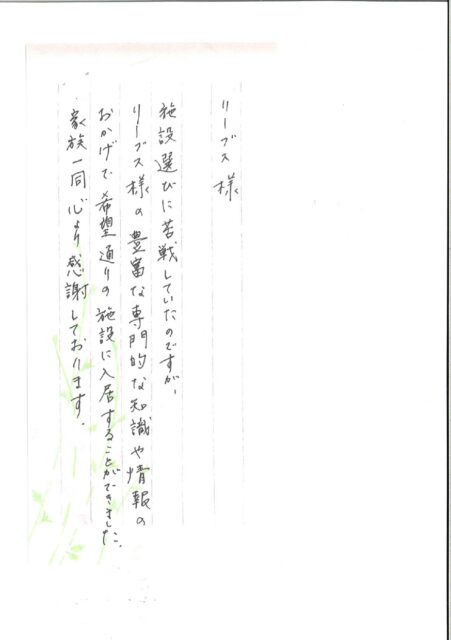 リーブス様
施設選びに苦戦していたのですが、
リーブス様の豊富な専門的な知識や情報の
おかげで希望通りの施設に入居することができました。
家族一同心より感謝しております。